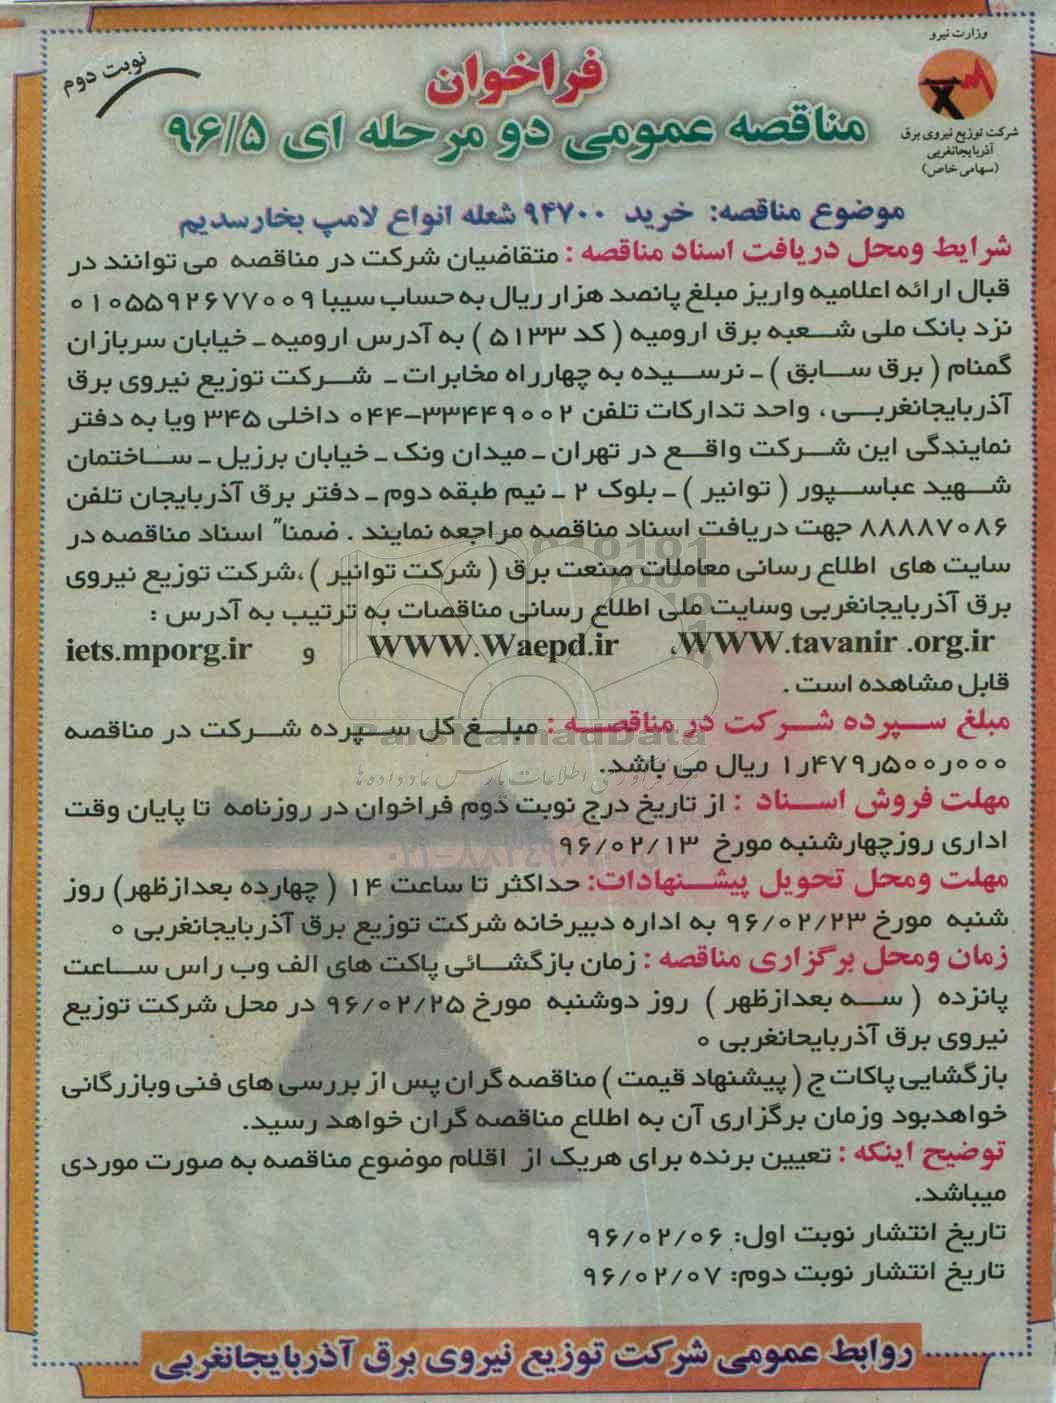 وزارت نیرو
شرکت توزیع نیروی برق
آذربایجانغربی
(سهامی خاص)
نوبت دوم
فراخوان
مناقصه عمومی دو مرحله ای ۹۶/۵
موضوع مناقصه: خرید ۹۴۷۰۰ شعله انواع لامپ بخارسدیم
شرایط ومحل دریافت اسناد مناقصه : متقاضیان شرکت در مناقصه می توانند در
قبال ارائه اعلامیه واریز مبلغ پانصد هزار ریال به حساب سیبا ۰۱۰۵۵۹۲۶۷۷۰۰۹
نزد بانک ملی شعبه برق ارومیه ( کد ۵۱۳۳ ) به آدرس ارومیه ـ خیابان سربازان
گمنام ( برق سابق ) ـ نرسیده به چهارراه مخابرات ـ شرکت توزیع نیروی برق
آذربایجانغربی ، واحد تدارکات تلفن ۳۳۴۴۹۰۰۲-۰۴۴ داخلی ۳۴۵ ویا به دفتر
نمایندگی این شرکت واقع در تهران ـ میدان ونک ـ خیابان برزیل ـ ساختمان
شهید عباسپور ( توانیر ) ـ بلوک ۲ ـ نیم طبقه دوم ـ دفتر برق آذربایجان تلفن
۸۸۸۸۷۰۸۶ جهت دریافت اسناد مناقصه مراجعه نمایند . ضمنا" اسناد مناقصه در
سایت های اطلاع رسانی معاملات صنعت برق ( شرکت توانیر ) ،شرکت توزیع نیروی
برق آذربایجانغربی وسایت ملی اطلاع رسانی مناقصات به ترتیب به آدرس :
WWW.tavanir .org.ir، WWW.Waepd.ir و iets.mporg.ir
قابل مشاهده است .
مبلغ سپرده شرکت در مناقصه : مبلغ کل سپرده شرکت در مناقصه
۱ر۴۷۹ر۵۰۰ر۰۰۰ ریال می باشد.
مهلت فروش اسناد : از تاریخ درج نوبت دوم فراخوان در روزنامه تا پایان وقت
اداری روزچهارشنبه مورخ ۹۶/۰۲/۱۳
مهلت ومحل تحویل پیشنهادات: حداکثر تا ساعت ۱۴ ( چهارده بعدازظهر) روز
شنبه مورخ ۹۶/۰۲/۲۳ به اداره دبیرخانه شرکت توزیع برق آذربایجانغربی ه
زمان ومحل برگزاری مناقصه : زمان بازگشائی پاکت های الف وب راس ساعت
پانزده ( سه بعدازظهر ) روز دوشنبه مورخ ۹۶/۰۲/۲۵ در محل شرکت توزیع
نیروی برق آذربایجانغربی ه
بازگشایی پاکات ج ( پیشنهاد قیمت ) مناقصه گران پس از بررسی های فنی وبازرگانی
خواهدبود وزمان برگزاری آن به اطلاع مناقصه گران خواهد رسید.
توضیح اینکه : تعیین برنده برای هریک از اقلام موضوع مناقصه به صورت موردی
میباشد.
تاریخ انتشار نوبت اول: ۹۶/۰۲/۰۶
تاریخ انتشار نوبت دوم: ۹۶/۰۲/۰۷
روابط عمومی شرکت توزیع نیروی برق آذربایجانغربی
ParsNamadData